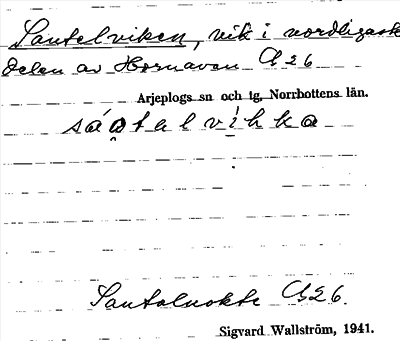 Sautelviken, vik i nordligaste
delen av Hornavan G26
Arjeplogs sn och tg, Norrbottens län.
sáutelvihka
Sautaluokte G26.
Sigvard Wallström, 1941.